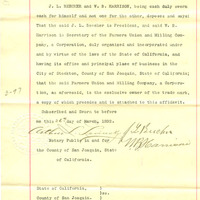 J. L. BEECHER and W. B. HARRISON, being each duly sworn
each for himself and not one for the other, deposes and says:
That the said J. L. Beecher is President and the said W. B.
Harrison is Secretary of the Farmers Union and Milling Company,
a Corporation, duly organized and incorporated under
and by virtue of the laws of the State of California, and
having its office and principal place of business in the
City of Stockton, County of San Joaquin, State of California;
that the said Farmers Union and Milling Company, a Corporation,
as aforesaid, is the exclusive owner of the trade mark,
a copy of which precedes and is attached to this affidavit.
Subscribed and Sworn to before
me this day of March, 1893.
Notary Public in and for
the County of San Joaquin, State
of California.
State of California,
County of San Joaquin.